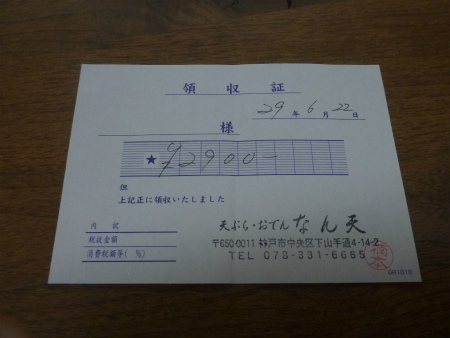 領収証
29年6月22日
様
★ ¥2900-
但
上記正に領収いたしました
内訳
税抜金額
消費税額等( %)
天ぷら・おでん なん天
〒650-0011 神戸市中央区下山手通4-14-2
TEL 078-331-6665